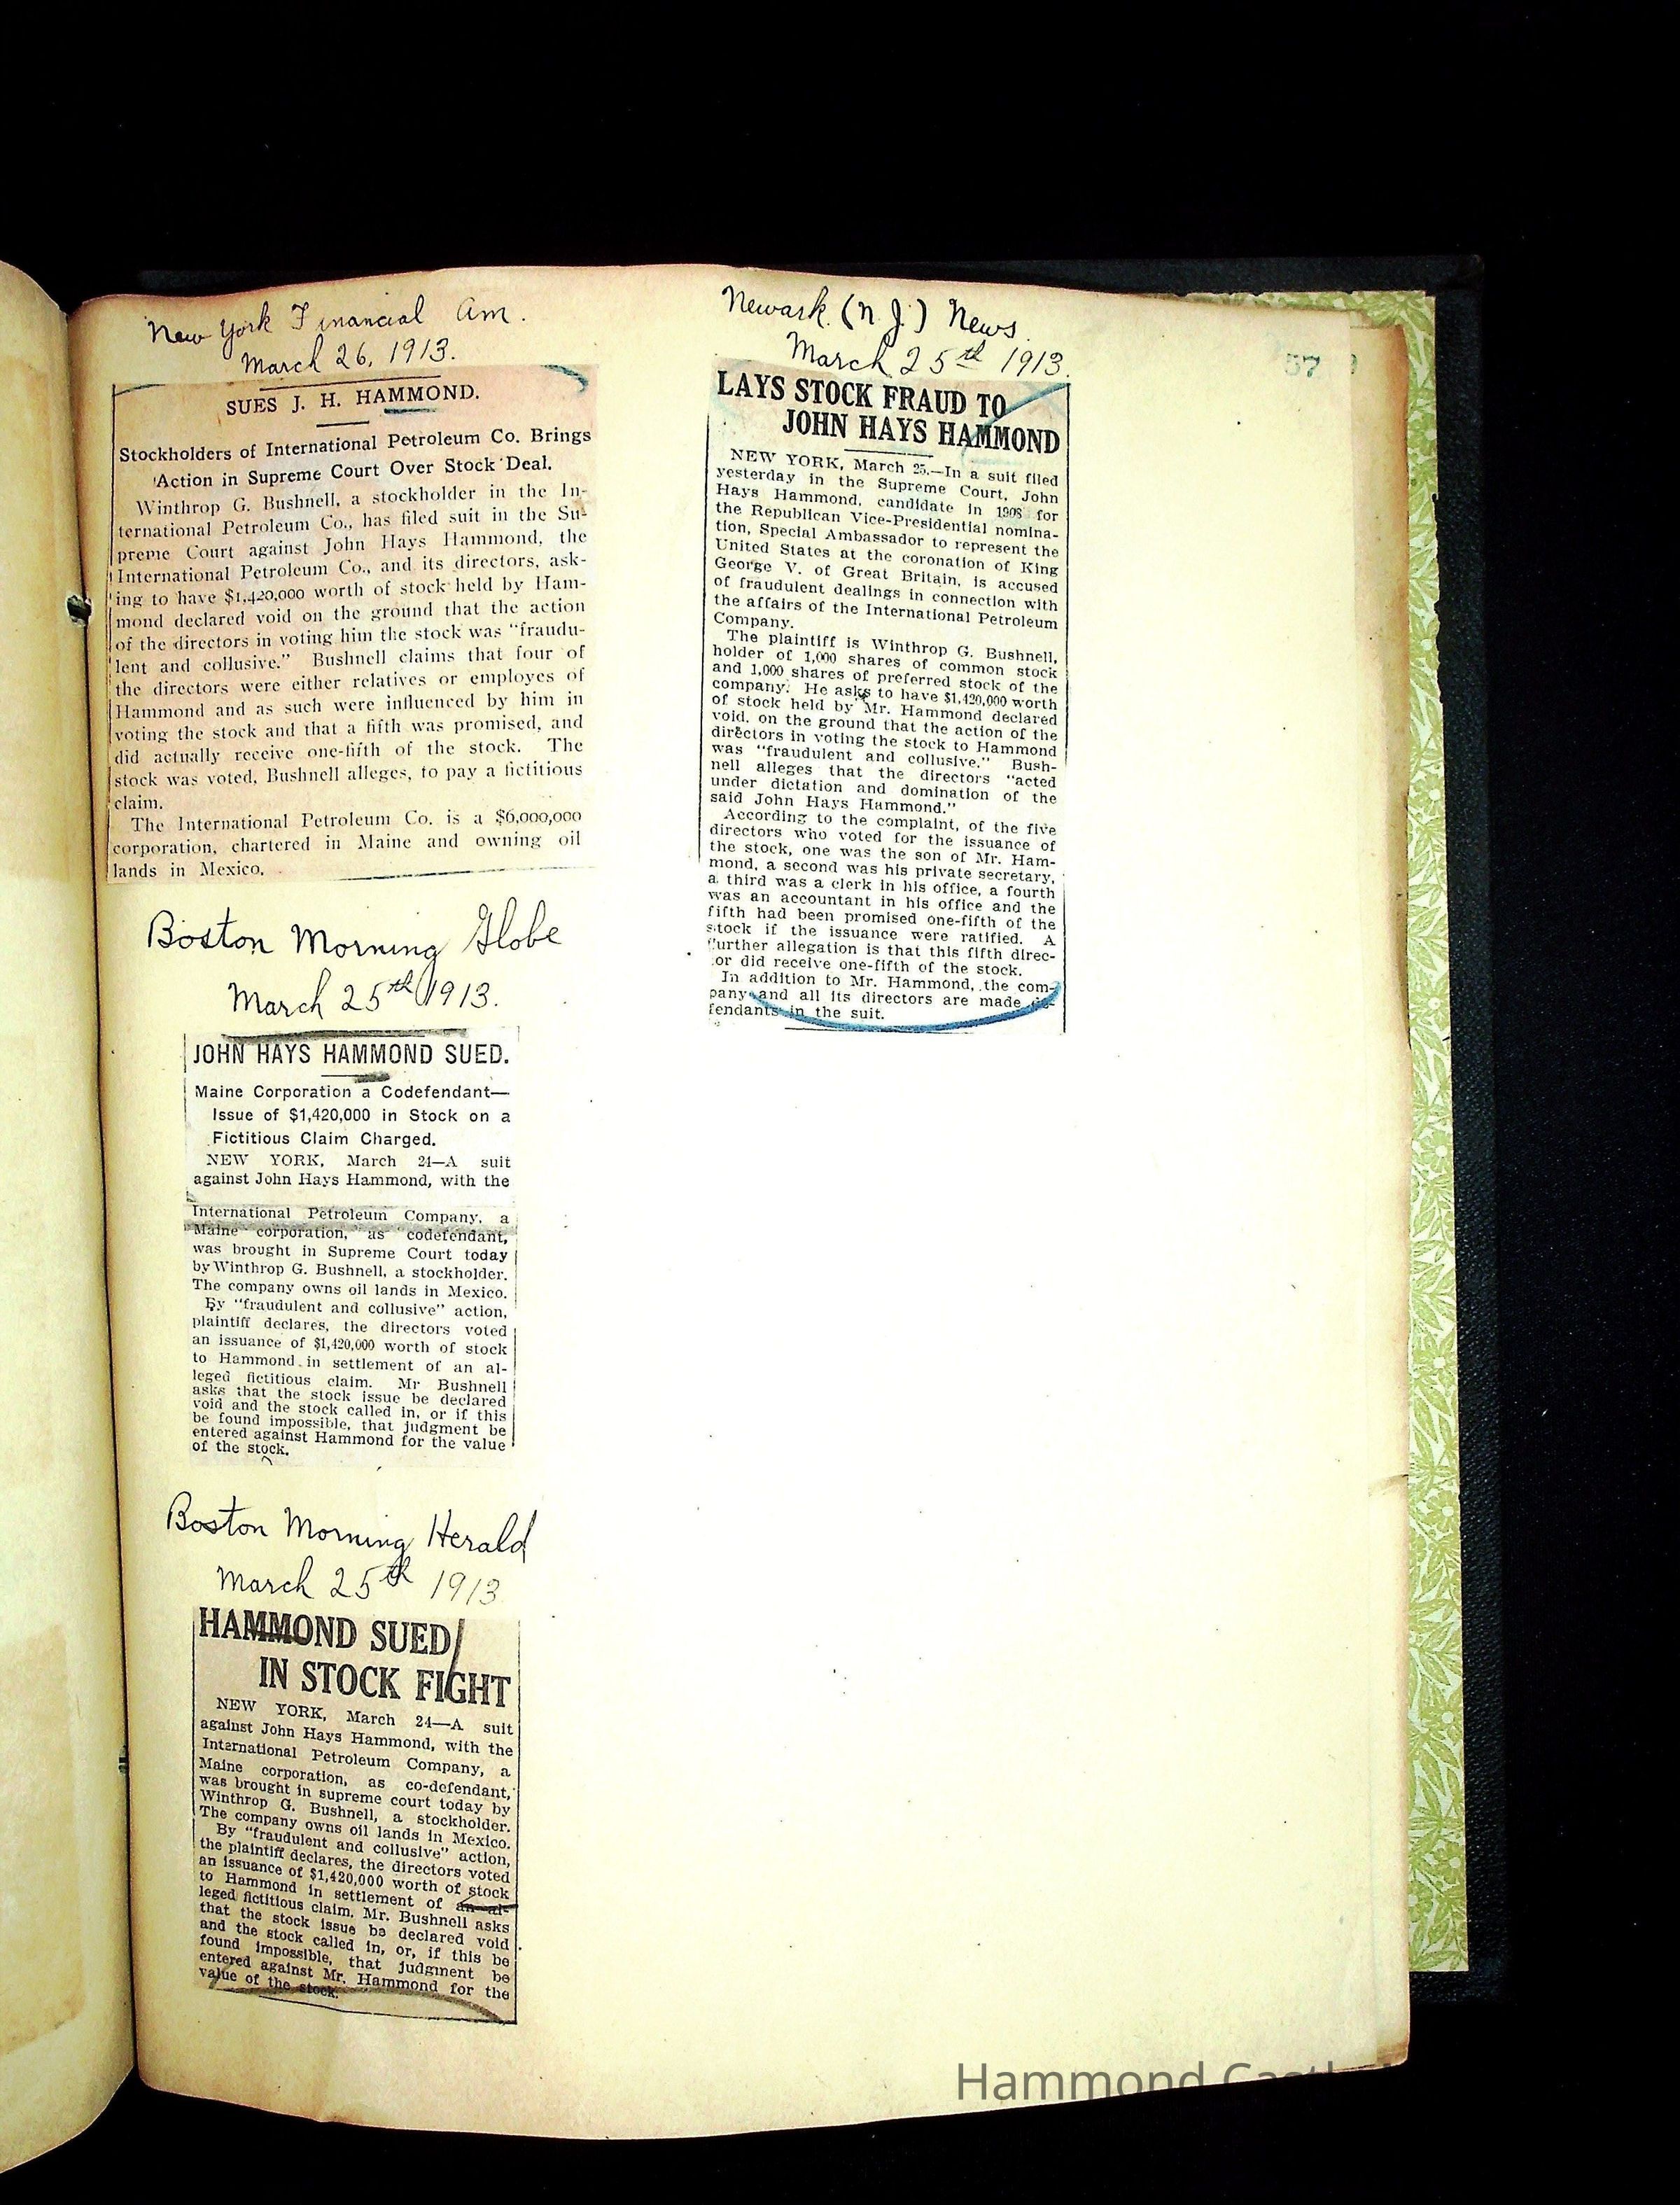 New York Financial Am.
March 26, 1913.
SUES J. H. HAMMOND.
Stockholders of International Petroleum Co. Brings
Action in Supreme Court Over Stock Deal.
Winthrop G. Bushnell, a stockholder in the In-
ternational Petroleum Co., has filed suit in the Su-
preme Court against John Hays Hammond, the
International Petroleum Co., and its directors, ask-
ing to have $1,420,000 worth of stock held by Ham-
mond declared void on the ground that the action
of the directors in voting him the stock was "fraudu-
lent and collusive." Bushnell claims that four of
the directors were either relatives or employes of
Hammond and as such were influenced by him in
voting the stock and that a fifth was promised, and
did actually receive one-fifth of the stock. The
stock was voted, Bushnell alleges, to pay a fictitious
claim.
The International Petroleum Co. is a $6,000,000
corporation, chartered in Maine and owning oil
lands in Mexico.
Boston Morning Globe
March 25th 1913.
JOHN HAYS HAMMOND SUED.
Maine Corporation a Codefendant—
Issue of $1,420,000 in Stock on a
Fictitious Claim Charged.
NEW YORK, March 24—A suit
against John Hays Hammond, with the
International Petroleum Company, a
Maine corporation, as codefendant,
was brought in Supreme Court today
by Winthrop G. Bushnell, a stockholder.
The company owns oil lands in Mexico.
By "fraudulent and collusive" action,
plaintiff declares, the directors voted
an issuance of $1,420,000 worth of stock
to Hammond in settlement of an al-
leged fictitious claim. Mr Bushnell
asks that the stock issue be declared
void and the stock called in, or if this
be found impossible, that judgment be
entered against Hammond for the value
of the stock.
Boston Morning Herald
March 25th 1913
HAMMOND SUED
IN STOCK FIGHT
NEW YORK, March 24—A suit
against John Hays Hammond, with the
International Petroleum Company, a
Maine corporation, as co-defendant,
was brought in supreme court today by
Winthrop G. Bushnell, a stockholder.
The company owns oil lands in Mexico.
By "fraudulent and collusive" action,
the plaintiff declares, the directors voted
an issuance of $1,420,000 worth of stock
to Hammond in settlement of an al-
leged fictitious claim. Mr. Bushnell asks
that the stock issue be declared void
and the stock called in, or, if this be
found impossible, that judgment be
entered against Mr. Hammond for the
value of the stock.
Newark (N. J.) News
March 25th 1913.
LAYS STOCK FRAUD TO
JOHN HAYS HAMMOND
NEW YORK, March 25.—In a suit filed
yesterday in the Supreme Court, John
Hays Hammond, candidate in 1908 for
the Republican Vice-Presidential nomina-
tion, Special Ambassador to represent the
United States at the coronation of King
George V. of Great Britain, is accused
of fraudulent dealings in connection with
the affairs of the International Petroleum
Company.
The plaintiff is Winthrop G. Bushnell,
holder of 1,000 shares of common stock
and 1,000 shares of preferred stock of the
company. He asks to have $1,420,000 worth
of stock held by Mr. Hammond declared
void, on the ground that the action of the
directors in voting the stock to Hammond
was "fraudulent and collusive." Bush-
nell alleges that the directors "acted
under dictation and domination of the
said John Hays Hammond."
According to the complaint, of the five
directors who voted for the issuance of
the stock, one was the son of Mr. Ham-
mond, a second was his private secretary,
a third was a clerk in his office, a fourth
was an accountant in his office and the
fifth had been promised one-fifth of the
stock if the issuance were ratified. A
further allegation is that this fifth direc-
or did receive one-fifth of the stock.
In addition to Mr. Hammond, the com-
pany and all its directors are made de-
fendants in the suit.
57
Hammond